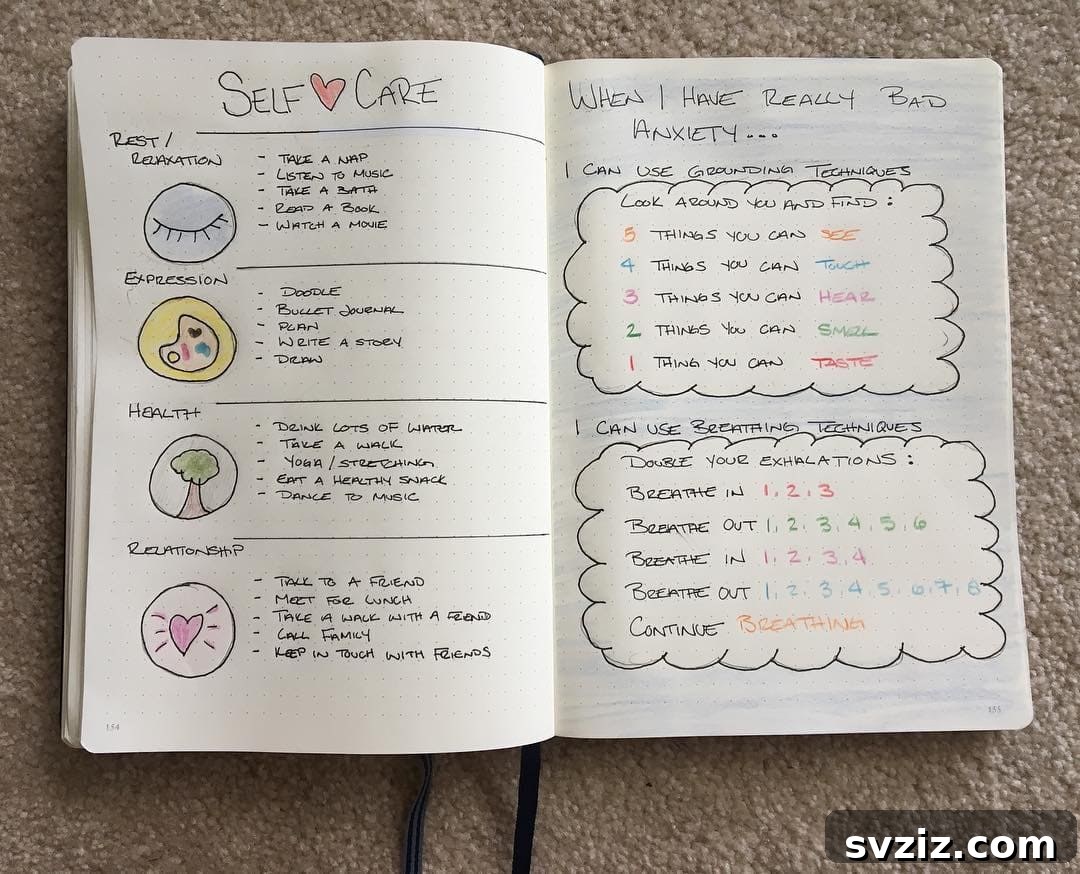 SELF CARE
REST /
RELAXATION
- TAKE A NAP
- LISTEN TO MUSIC
- TAKE A BATH
- READ A BOOK
- WATCH A MOVIE
EXPRESSION
- DOODLE
- BULLET JOURNAL
- PLAN
- WRITE A STORY
- DRAW
HEALTH
- DRINK LOTS OF WATER
- TAKE A WALK
- YOGA / STRETCHING
- EAT A HEALTHY SNACK
- DANCE TO MUSIC
RELATIONSHIP
- TALK TO A FRIEND
- MEET FOR LUNCH
- TAKE A WALK WITH A FRIEND
- CALL FAMILY
- KEEP IN TOUCH WITH FRIENDS
154
WHEN I HAVE REALLY BAD
ANXIETY...
I CAN USE GROUNDING TECHNIQUES
LOOK AROUND YOU AND FIND :
5 THINGS YOU CAN SEE
4 THINGS YOU CAN TOUCH
3 THINGS YOU CAN HEAR
2 THINGS YOU CAN SMELL
1 THING YOU CAN TASTE
I CAN USE BREATHING TECHNIQUES
DOUBLE YOUR EXHALATIONS :
BREATHE IN 1, 2, 3
BREATHE OUT 1, 2, 3, 4, 5, 6
BREATHE IN 1, 2, 3, 4
BREATHE OUT 1, 2, 3, 4, 5, 6, 7, 8
CONTINUE BREATHING
155
svziz.com